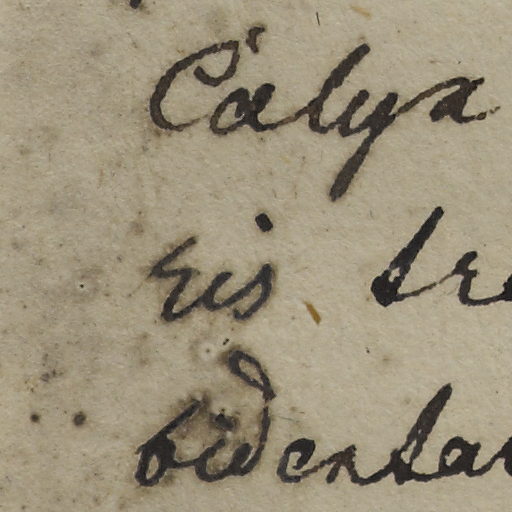 Calyx
ris tre
bidentat